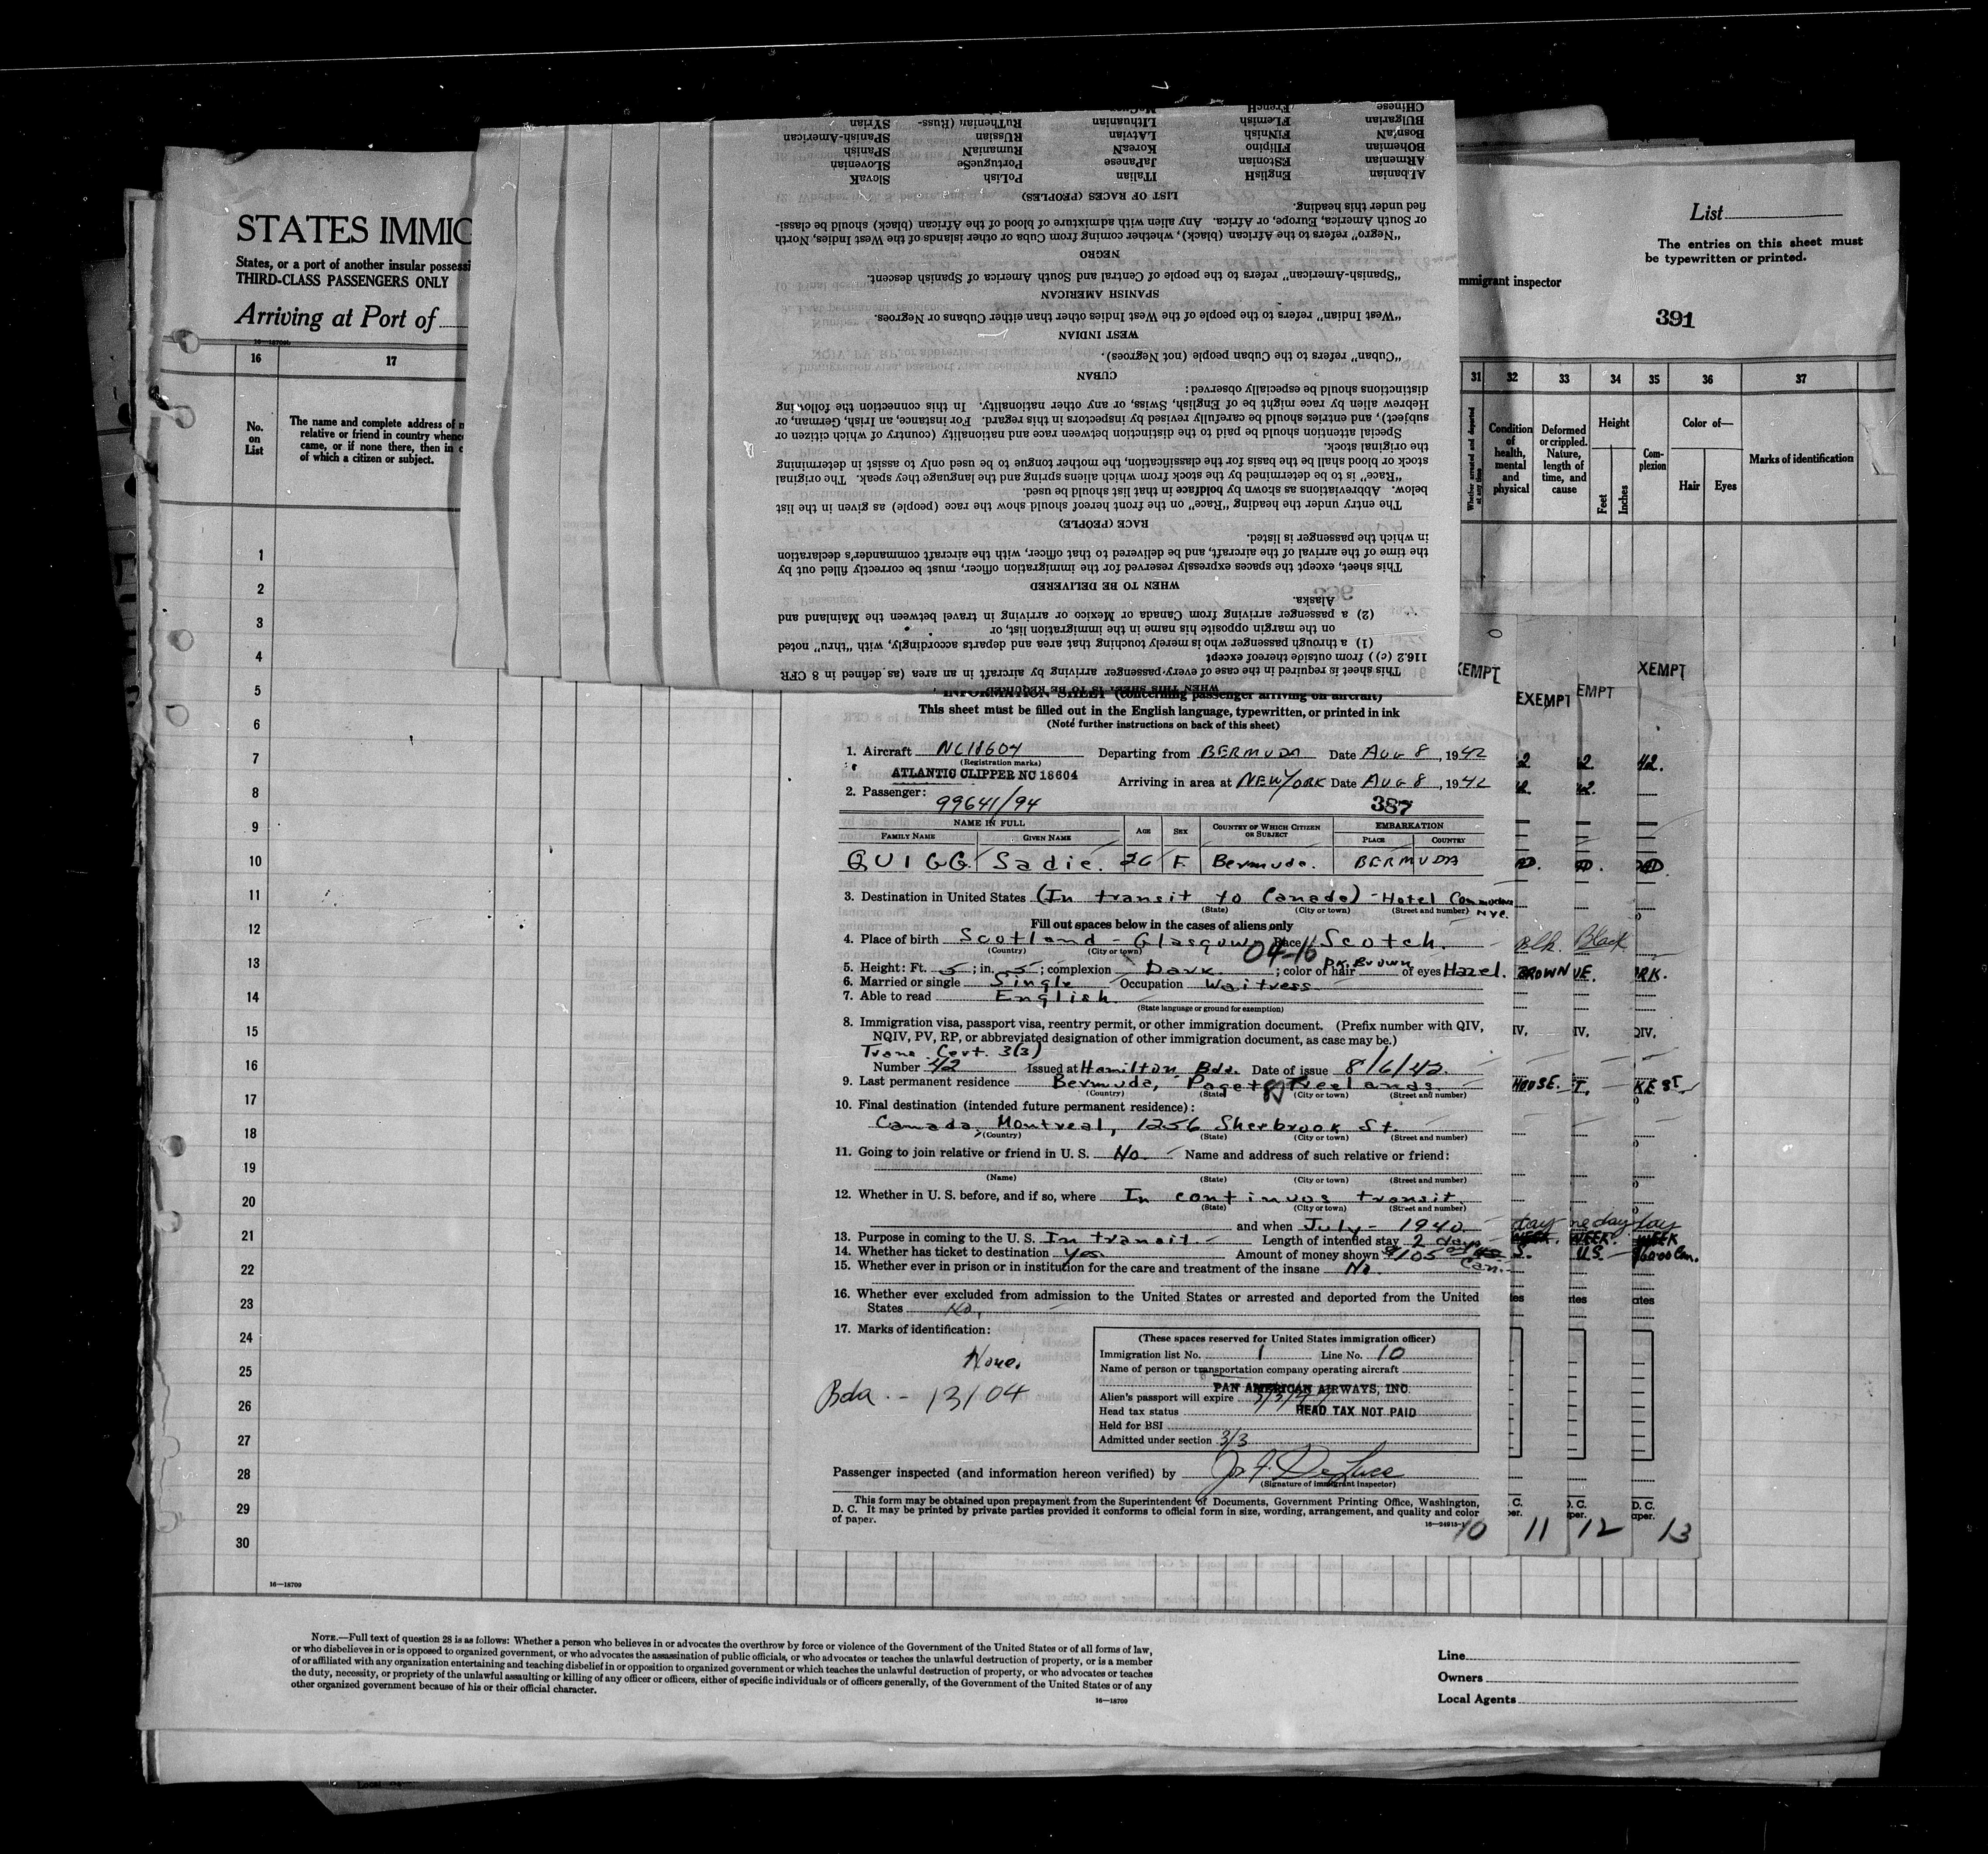 STATES IMMIG
States, or a port of another insular possessi
THIRD-CLASS PASSENGERS ONLY
Arriving at Port of
16—18709
16 17
No. on List
The name and complete address of n
relative or friend in country whence
came, or if none there, then in c
of which a citizen or subject.
1
2
3
4
5
6
7
8
9
10
11
12
13
14
15
16
17
18
19
20
21
22
23
24
25
26
27
28
29
30
16—18709
List
The entries on this sheet must
be typewritten or printed.
mmigrant inspector
391
31 32 33 34 35 36 37
Whether arrested and deported at any time
Condition of health, mental and physical
Deformed or crippled. Nature, length of time, and cause
Height
Feet
Inches
Complexion
Color of—
Hair Eyes
Marks of identification
WHEN THIS SHEET IS TO BE REQUIRED
This sheet is required in the case of every passenger arriving by aircraft in an area (as defined in 8 CFR
116.2 (c)) from outside thereof except
(1) a through passenger who is merely touching that area and departs accordingly, with "thru" noted
on the margin opposite his name in the immigration list, or
(2) a passenger arriving from Canada or Mexico or arriving in travel between the Mainland and
Alaska.
WHEN TO BE DELIVERED
This sheet, except the spaces expressly reserved for the immigration officer, must be correctly filled out by
the time of the arrival of the aircraft, and be delivered to that officer, with the aircraft commander's declaration
in which the passenger is listed.
RACE (PEOPLE)
The entry under the heading "Race" on the front hereof should show the race (people) as given in the list
below. Abbreviations as shown by boldface in that list should be used.
"Race" is to be determined by the stock from which aliens spring and the language they speak. The original
stock or blood shall be the basis for the classification, the mother tongue to be used only to assist in determining
the original stock.
Special attention should be paid to the distinction between race and nationality (country of which citizen or
subject), and entries should be carefully revised by inspectors in this regard. For instance, an Irish, German, or
Hebrew alien by race might be of English, Swiss, or any other nationality. In this connection the following
distinctions should be especially observed:
CUBAN
"Cuban" refers to the Cuban people (not Negroes).
WEST INDIAN
"West Indian" refers to the people of the West Indies other than either Cubans or Negroes.
SPANISH AMERICAN
"Spanish-American" refers to the people of Central and South America of Spanish descent.
NEGRO
"Negro" refers to the African (black), whether coming from Cuba or other islands of the West Indies, North
or South America, Europe, or Africa. Any alien with admixture of blood of the African (black) should be classi-
fied under this heading.
LIST OF RACES (PEOPLES)
AlBanian EnglisH ITalian PoLish SlovaK
ARmenian EStonian JaPanese PortugueSe SLovenian
BOhemian Filipino KoreaN RumaniaN SPanish
BosniaN FiNnish LAtvian RUssian SPanish-American
BUlgarian FLemish LIthuanian RuThenian (Russ- SYrian
CHinese FrencH
INFORMATION SHEET (concerning passenger arriving on aircraft)
This sheet must be filled out in the English language, typewritten, or printed in ink
(Note further instructions on back of this sheet)
1. Aircraft NC18604 Departing from BERMUDA Date AUG 8, 1942
(Registration marks)
ATLANTIC CLIPPER NC 18604 Arriving in area at NEW YORK Date AUG 8, 1942
2. Passenger: 99641/94 387
NAME IN FULL AGE SEX COUNTRY OF WHICH CITIZEN OR SUBJECT EMBARKATION
FAMILY NAME GIVEN NAME PLACE COUNTRY
QUIGG Sadie. 26 F. Bermuda. BERMUDA
3. Destination in United States (In transit to Canada) - Hotel Commodore NYC.
(State) (City or town) (Street and number)
Fill out spaces below in the cases of aliens only
4. Place of birth Scotland - Glasgow Race Scotch.
(Country) (City or town) 04-16
5. Height: Ft. 5; in. 5; complexion Dark; color of hair DK. Brown of eyes Hazel.
6. Married or single Single Occupation Waitress
7. Able to read English
(State language or ground for exemption)
8. Immigration visa, passport visa, reentry permit, or other immigration document. (Prefix number with QIV,
NQIV, PV, RP, or abbreviated designation of other immigration document, as case may be.)
Trans. Cert. 3(3)
Number 42 Issued at Hamilton Bda. Date of issue 8/6/42.
9. Last permanent residence Bermuda, Paget Freelands.
(Country) (State) (City or town) (Street and number)
10. Final destination (intended future permanent residence):
Canada, Montreal, 1256 Sherbrook St.
(Country) (State) (City or town) (Street and number)
11. Going to join relative or friend in U. S. No. Name and address of such relative or friend:
(Name) (State) (City or town) (Street and number)
12. Whether in U. S. before, and if so, where In continuos transit.
(State) (City or town) (Street and number)
and when July - 1940
13. Purpose in coming to the U. S. In transit. Length of intended stay 2 days
14. Whether has ticket to destination Yes Amount of money shown $105 Can.
15. Whether ever in prison or in institution for the care and treatment of the insane No.
16. Whether ever excluded from admission to the United States or arrested and deported from the United
States No.
17. Marks of identification:
None.
Bda. - 13104
(These spaces reserved for United States immigration officer)
Immigration list No. 1 Line No. 10
Name of person or transportation company operating aircraft
PAN AMERICAN AIRWAYS, INC.
Alien's passport will expire 3/3/47
Head tax status HEAD TAX NOT PAID
Held for BSI
Admitted under section 3/3
Passenger inspected (and information hereon verified) by
(Signature of immigrant inspector)
This form may be obtained upon prepayment from the Superintendent of Documents, Government Printing Office, Washington,
D. C. It may be printed by private parties provided it conforms to official form in size, wording, arrangement, and quality and color
of paper.
10 11 12 13
XEMPT EXEMPT EMPT XEMPT
2 2 42.
Blk. Black
BROWN UE. RK.
IV. IV. QIV.
HOUSE. T. KE ST.
day ne day day
WEEK. WEEK. WEEK
S. U.S. $60.00 Can.
tes ates ates
C. D. C. D. C.
per. aper. aper.
NOTE.—Full text of question 28 is as follows: Whether a person who believes in or advocates the overthrow by force or violence of the Government of the United States or of all forms of law,
or who disbelieves in or is opposed to organized government, or who advocates the assassination of public officials, or who advocates or teaches the unlawful destruction of property, or is a member
of or affiliated with any organization entertaining and teaching disbelief in or opposition to organized government or which teaches the unlawful destruction of property, or who advocates or teaches
the duty, necessity, or propriety of the unlawful assaulting or killing of any officer or officers, either of specific individuals or of officers generally, of the Government of the United States or of any
other organized government because of his or their official character.
16—18709
Line
Owners
Local Agents